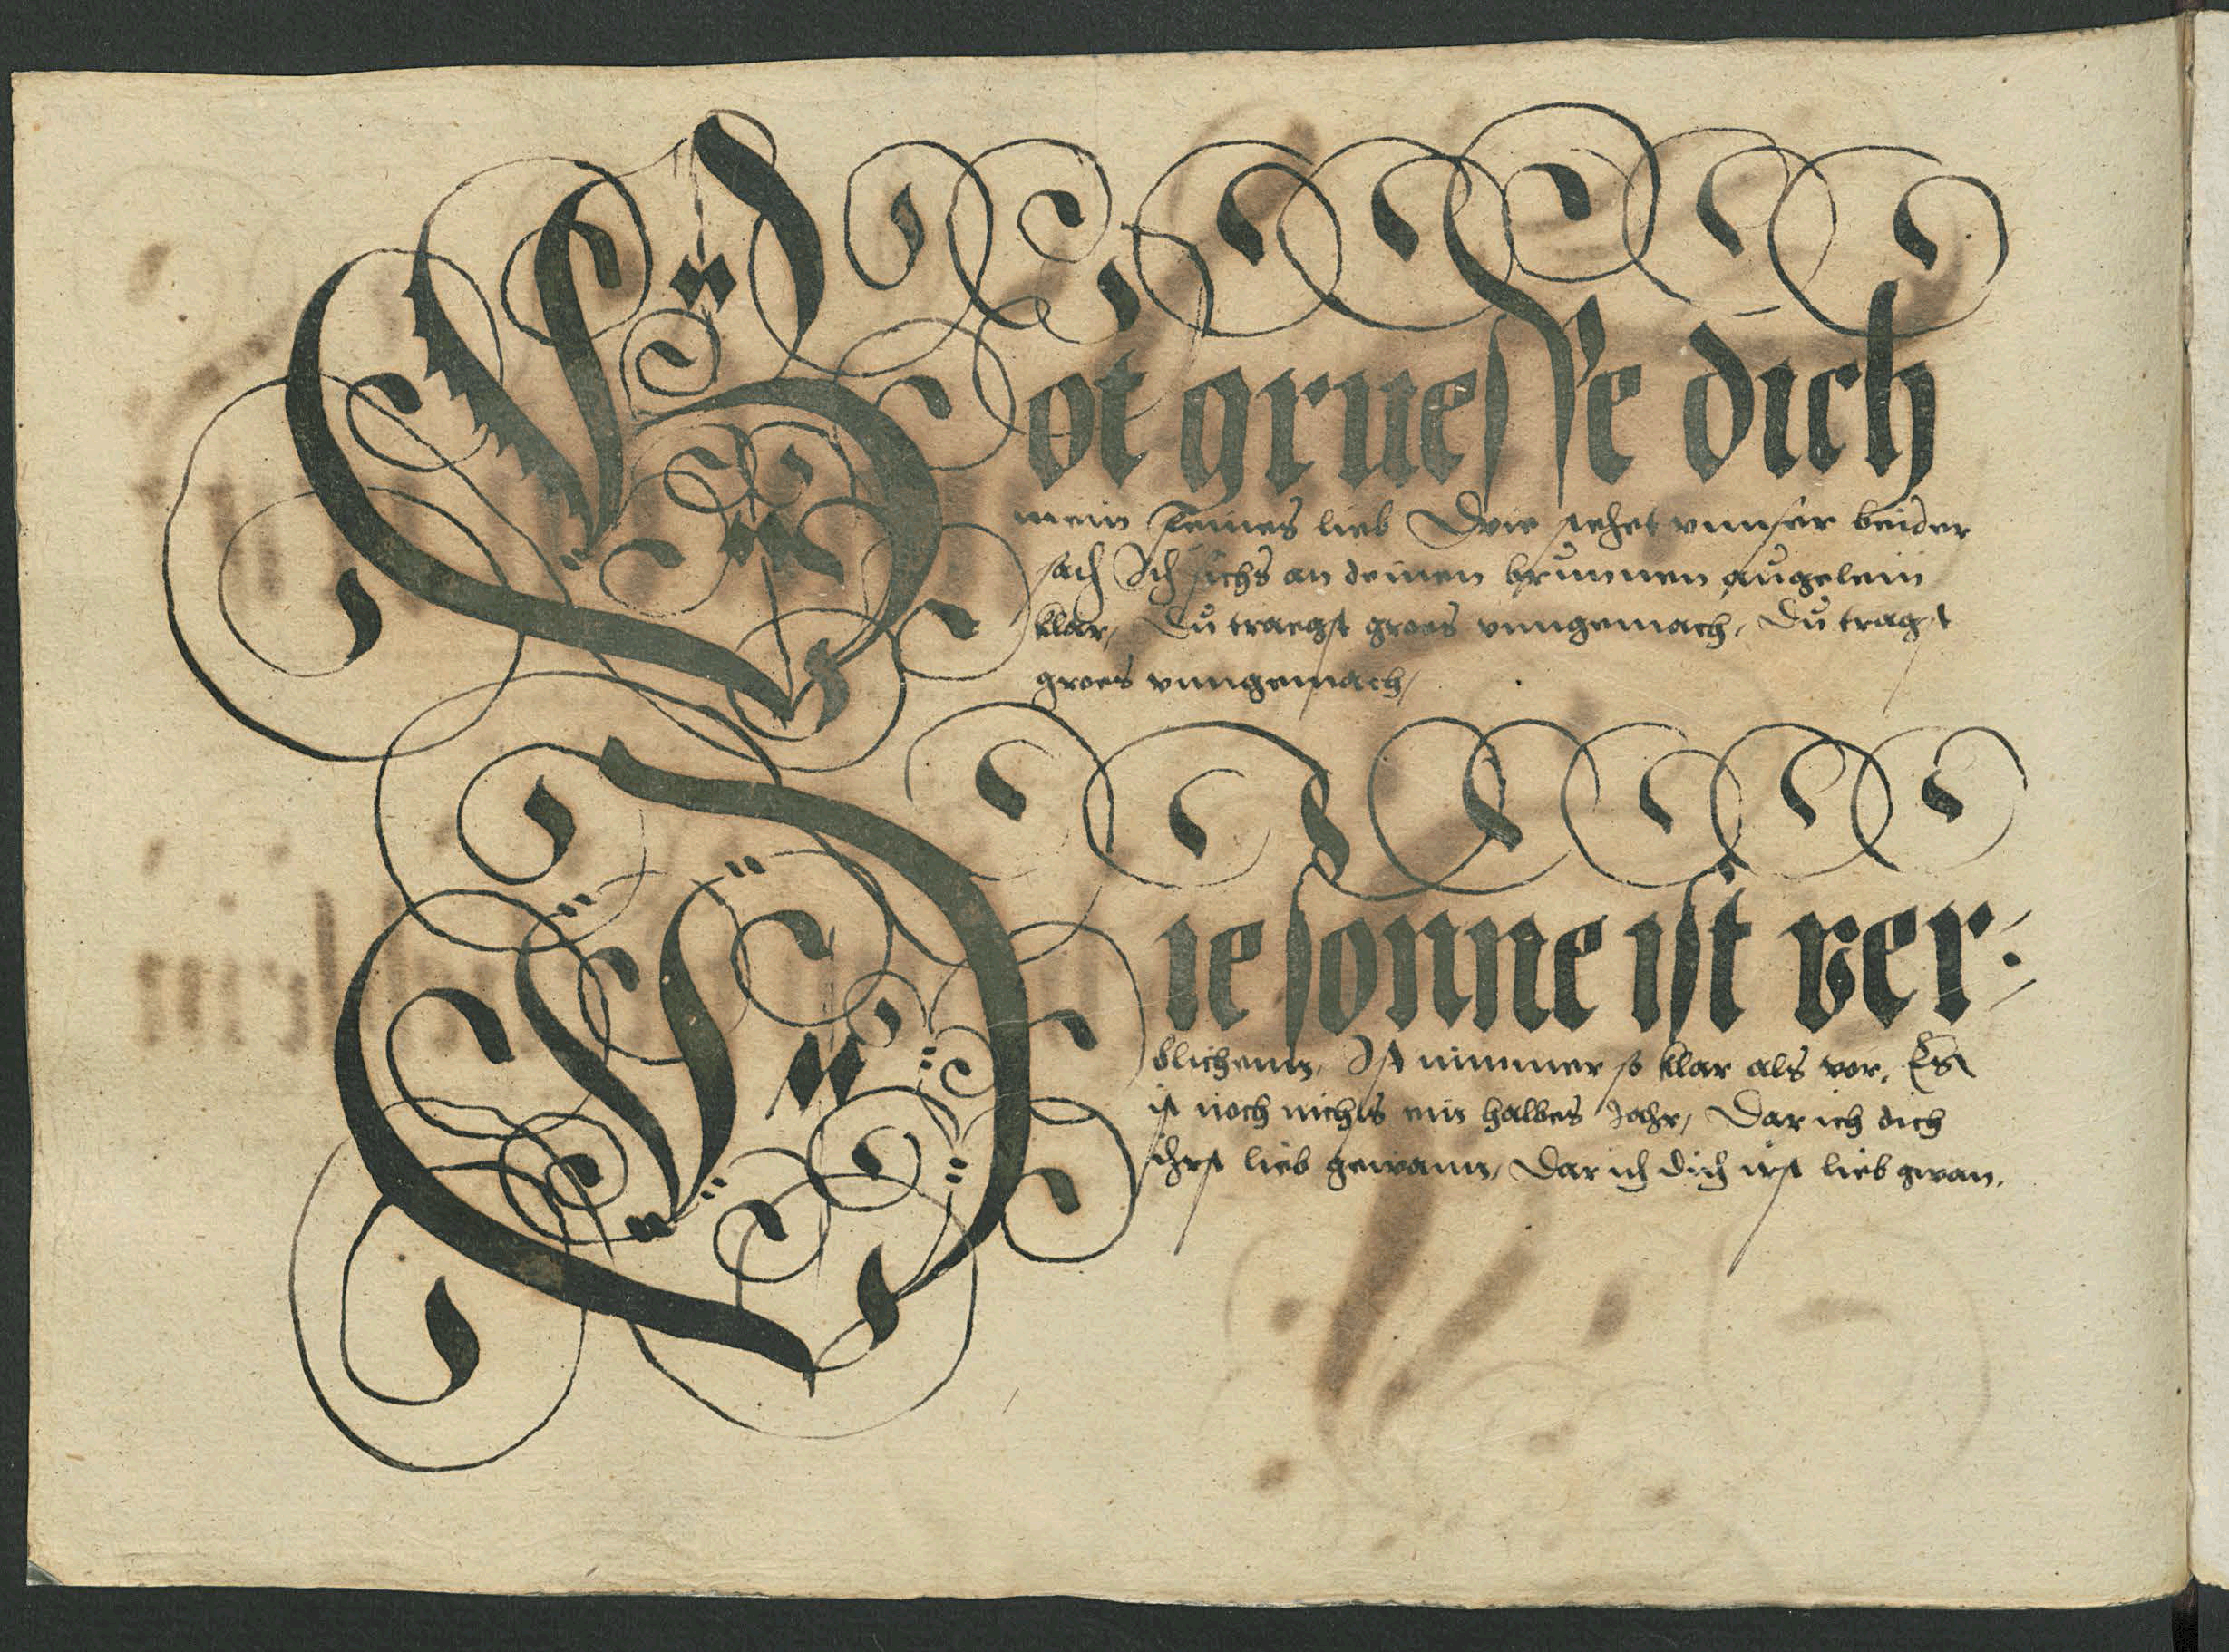 Got gruesse dich
mein feines lieb Wie stehet unnser beider
sach Ich sichs an deinen brunnen augelein
klar, Du traegst groes unngemach, Du tragst
groes unngemach,
Die sonne ist ver:
blichenn, Ist nimmer so klar als vor, Es
ist noch nichts ein halbes Jahr, Dar ich dich
ihrst lieb gewann, Dar ich dich irst lieb gwan.